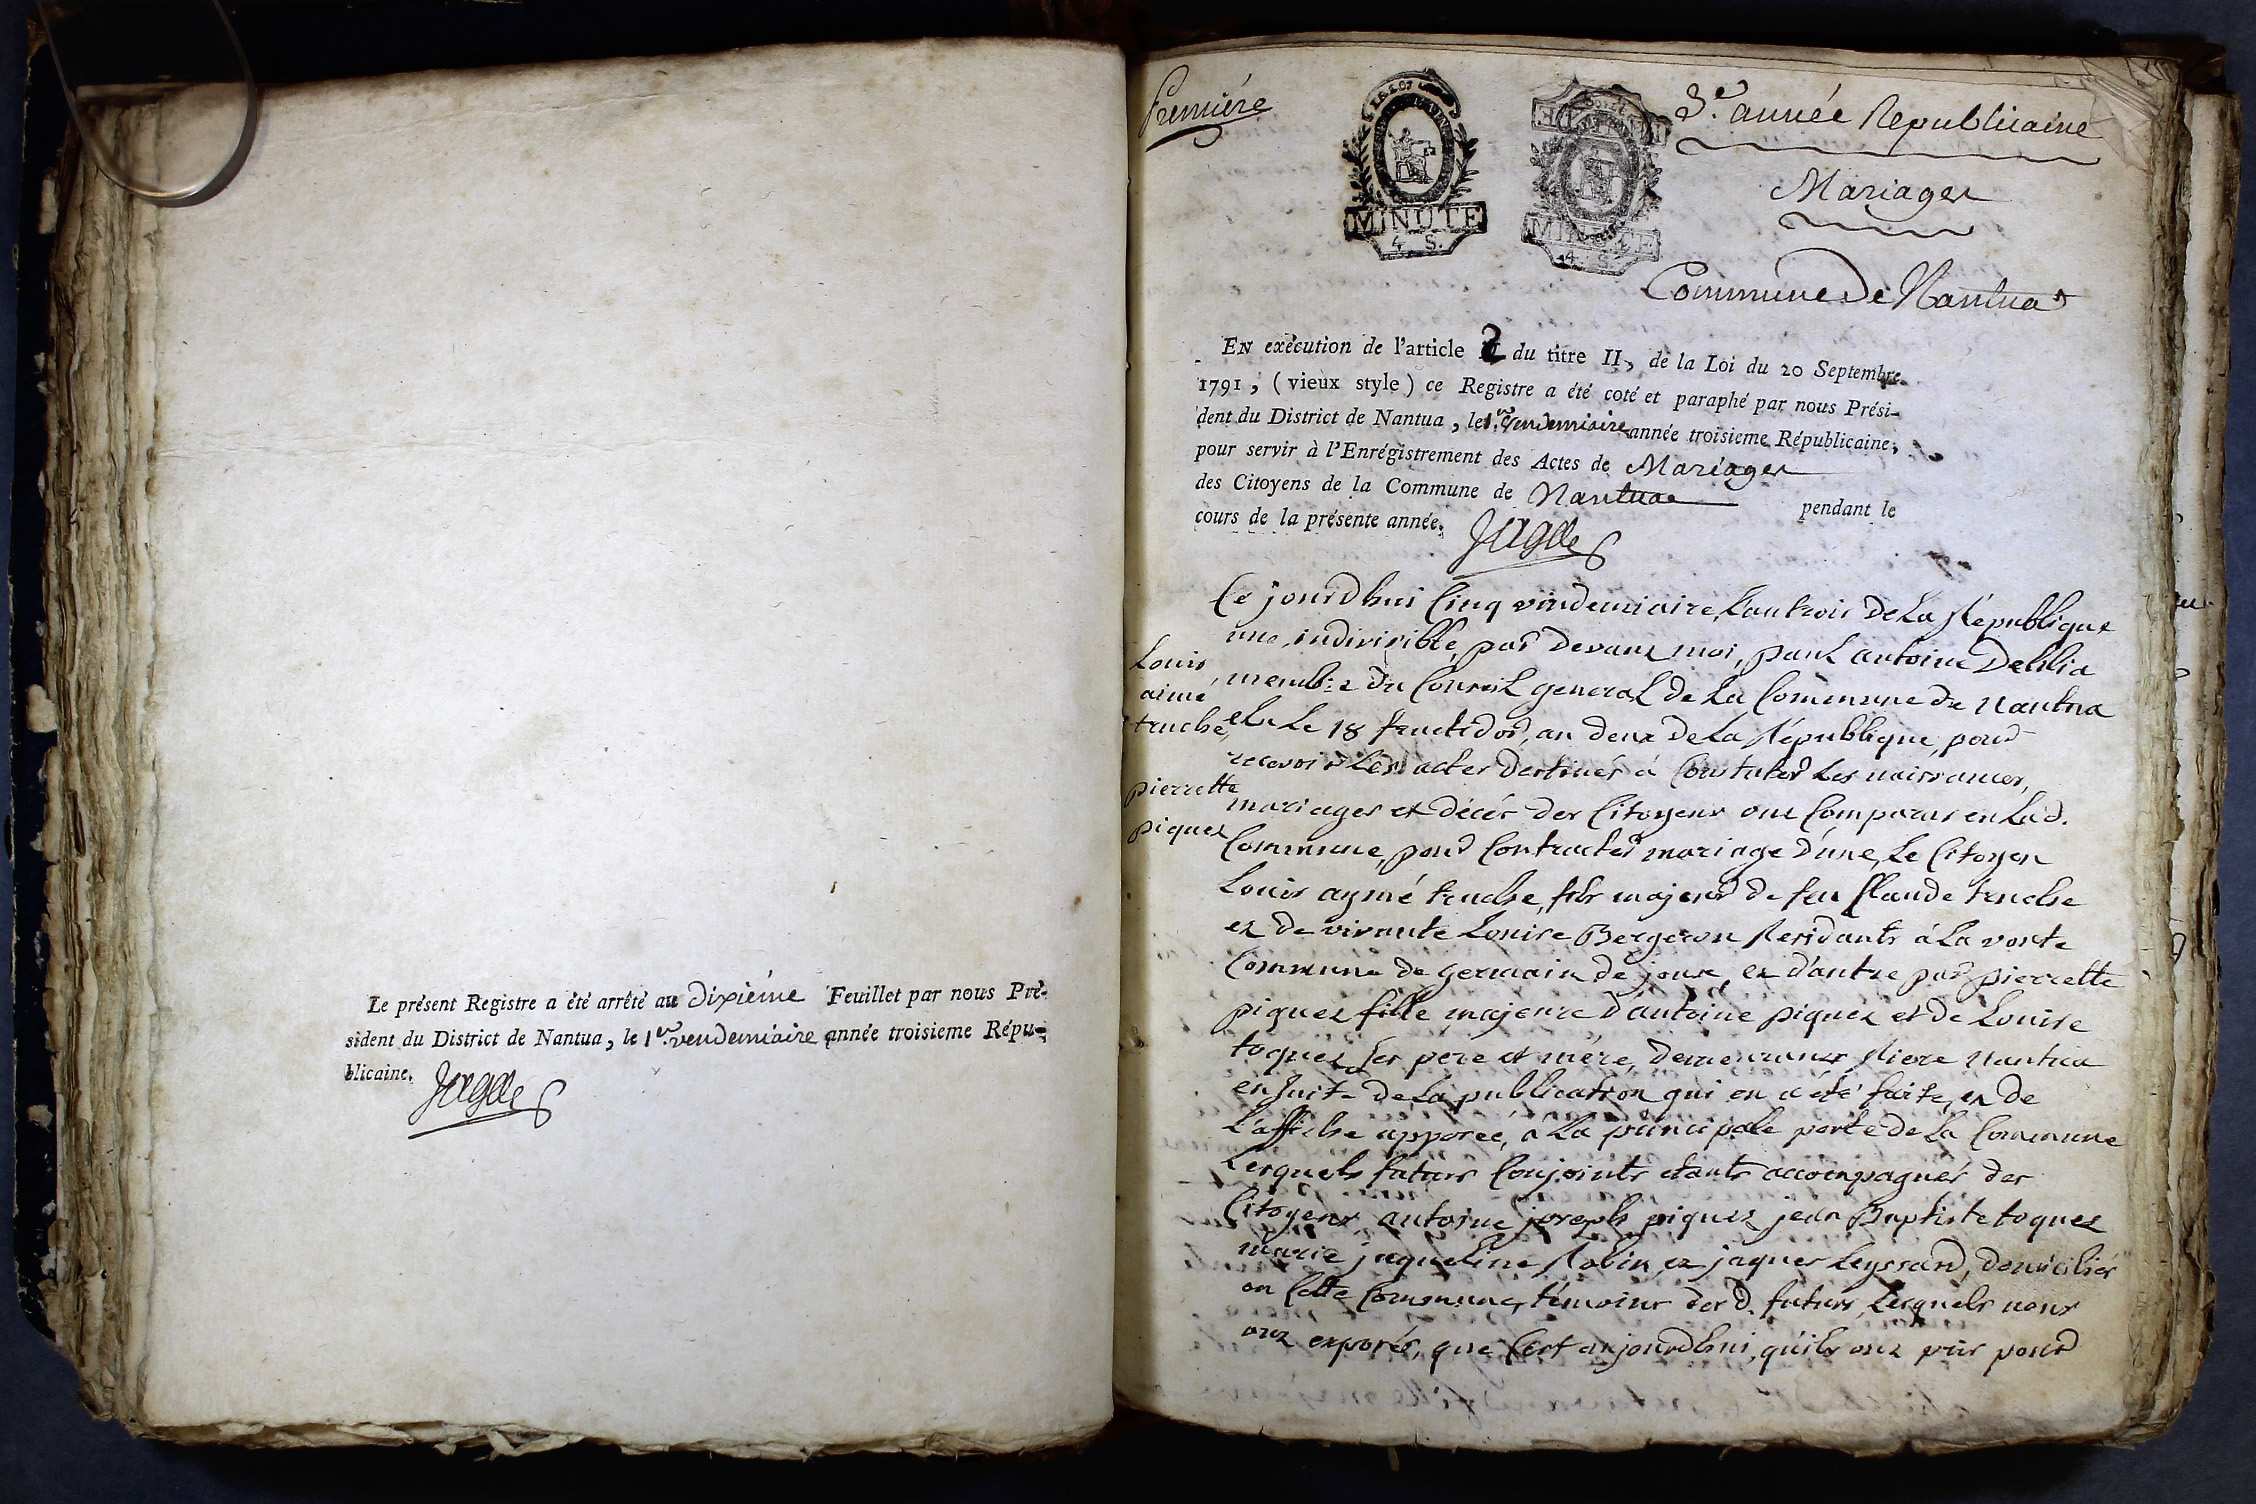 Le présent Registre a été arrêté au dixiéme Feuillet par nous Pré-
sident du District de Nantua, le 1er. vendemiaire année troisieme Répu-
blicaine.
Jagde
Premiére
MINUTE
4 S.
MINUTE
4 S.
3e. année Republicaine
Mariages
Commune De Nantua
EN exécution de l'article 2 du titre II, de la Loi du 20 Septembre
1791, (vieux style) ce Registre a été coté et paraphé par nous Prési-
dent du District de Nantua, le 1er. vendemiaire année troisieme Républicaine,
pour servir à l'Enrégistrement des Actes de Mariages
des Citoyens de la Commune de Nantua pendant le
cours de la présente année.
Jagde
Louis
aimé
truche
pierrette
piquet
Ce jourd'hui Cinq vindemiaire, L'an trois De La République
une, indivisible, par Devant moi, paul antoine Delilia
membre du Conseil general de La Commune de Nantua
elu Le 18 fructidor, an deux De La République, pour
recevoir Les actes destinés à Constater Les naissances,
mariages et décés des Citoyens ont Comparus en Lad.
Commune, pour Contracter mariage d'une, Le Citoyen
Louis aymé truche, fils majeur de feu Claude truche
et de vivante Louise Bergeron Residants á La voute
Commune de germain de joux, et d'autre par pierrette
piquet fille majeure d'antoine piquet et de Louise
toquet Ses pere et mére, demeurants Riere Nantua
en Suite de La publication qui en a été faite, et de
L'affiche apposée, á La principale porte de La Commune
Lesquels futurs Conjoints etants accompagnés des
Citoyens antoine joseph piquet jean Baptiste toquet
marie jaqueline Robin et jaques Leyssard, domiciliés
en Cette Commune, témoins des d. futurs, Lesquels nous
ont exposés, que C'est aujourd'hui, qu'ils ont pris pour